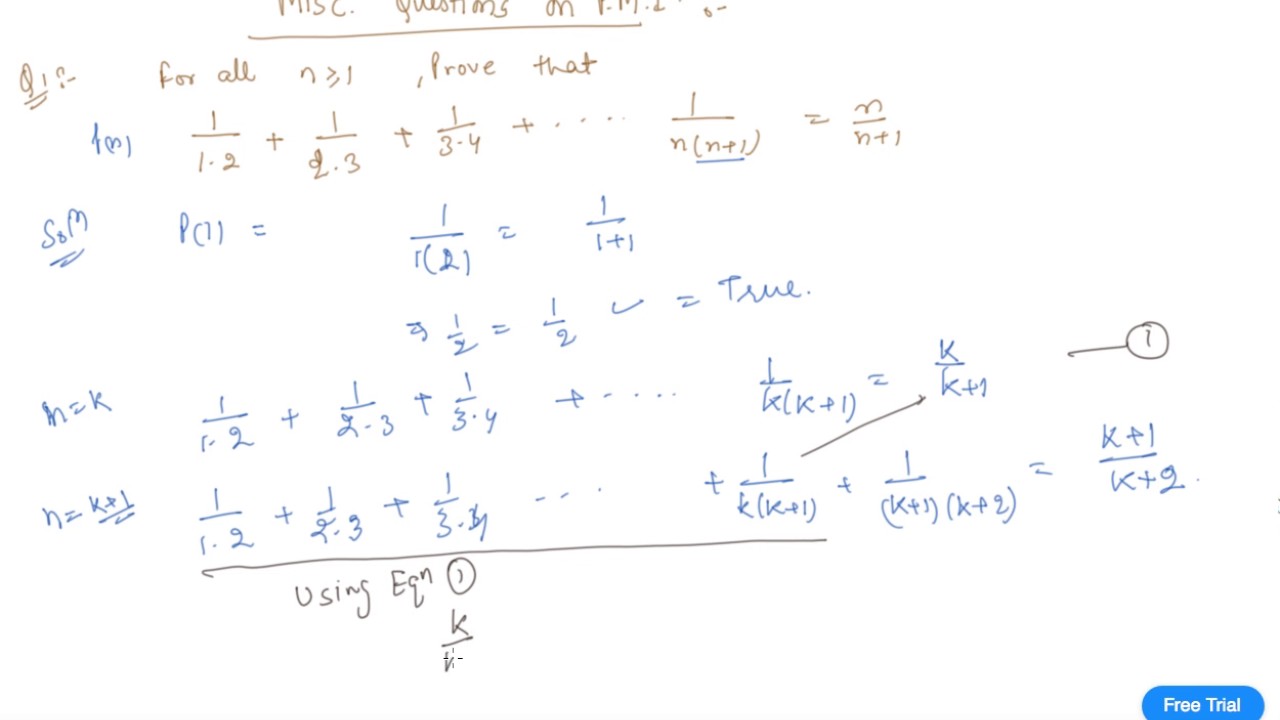 Misc. Questions on P.M.I :-
Q1:- For all n ≥ 1, Prove that
P(n) 1/1.2 + 1/2.3 + 1/3.4 + ..... 1/n(n+1) = n/n+1
Solⁿ P(1) = 1/1(2) = 1/1+1
⇒ 1/2 = 1/2 ✓ = True.
n=k 1/1.2 + 1/2.3 + 1/3.4 + ..... 1/k(k+1) = k/k+1 — ①
n=k+1 1/1.2 + 1/2.3 + 1/3.4 ... + 1/k(k+1) + 1/(k+1)(k+2) = k+1/k+2.
Using Eqⁿ ①
k
Free Trial